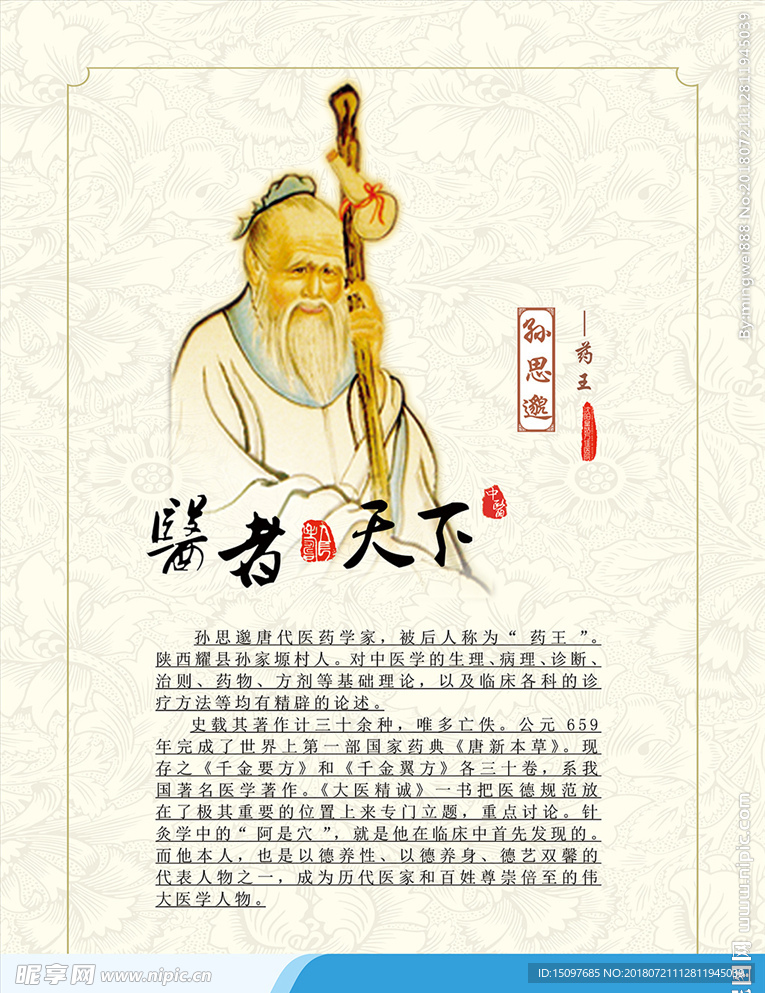 孙思邈
——药王
醫者天下
中醫
孙思邈唐代医药学家，被后人称为“ 药王 ”。
陕西耀县孙家塬村人。对中医学的生理、病理、诊断、
治则、药物、方剂等基础理论，以及临床各科的诊
疗方法等均有精辟的论述。
史载其著作计三十余种，唯多亡佚。公元 659
年完成了世界上第一部国家药典《唐新本草》。现
存之《千金要方》和《千金翼方》各三十卷，系我
国著名医学著作。《大医精诚》一书把医德规范放
在了极其重要的位置上来专门立题，重点讨论。针
灸学中的“ 阿是穴 ”，就是他在临床中首先发现的。
而他本人，也是以德养性、以德养身、德艺双馨的
代表人物之一，成为历代医家和百姓尊崇倍至的伟
大医学人物。
昵享网 www.nipic.cn
ID:15097685 NO:20180721112811945039
By:mingwei888 No:20180721112811945039
昵图网 www.nipic.com